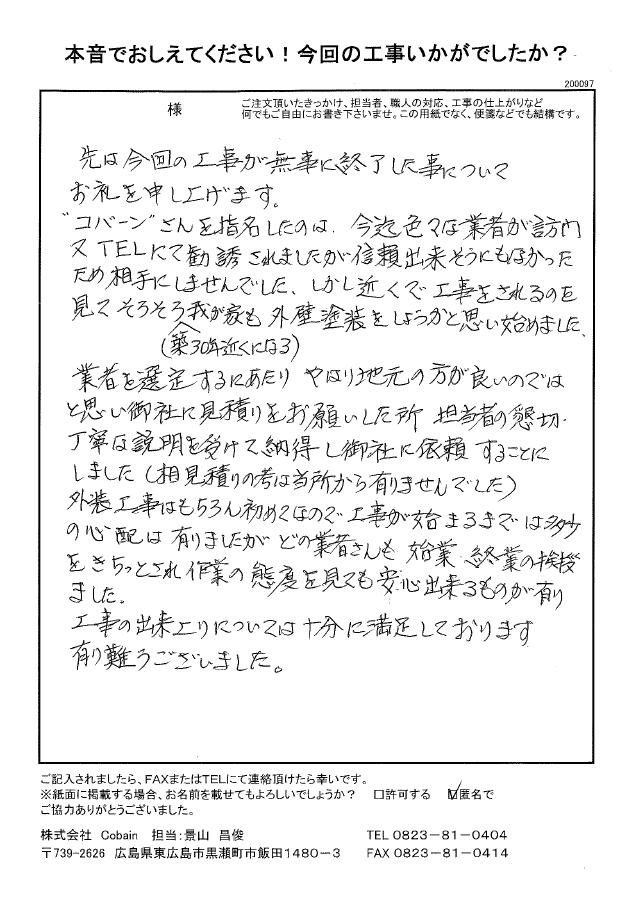 本音でおしえてください！今回の工事いかがでしたか？
200097
様
ご注文頂いたきっかけ、担当者、職人の対応、工事の仕上がりなど
何でもご自由にお書き下さいませ。この用紙でなく、便箋などでも結構です。
先は今回の工事が無事に終了した事について
お礼を申し上げます。
"コバーン"さんを指名したのは、今迄色々な業者が訪問
又TELにて勧誘されましたが信頼出来そうにもなかった
ため相手にしませんでした、しかし近くで工事をされるのを
見てそろそろ我が家も外壁塗装をしようかと思い始めました、
(築30年近くになる)
業者を選定するにあたりやはり地元の方が良いのでは
と思い御社に見積りをお願いした所 担当者の懇切・
丁寧な説明を受けて納得し御社に依頼することに
しました(相見積りの考は当所から有りませんでした)
外装工事はもちろん初めてなので工事が始まるまでは多少
の心配は有りましたがどの業者さんも始業、終業の挨拶
をきちっとされ作業の態度を見ても安心出来るものが有り
ました。
工事の出来上りについては十分に満足しております
有り難うございました。
ご記入されましたら、FAXまたはTELにて連絡頂けたら幸いです。
※紙面に掲載する場合、お名前を載せてもよろしいでしょうか？ □許可する ☑匿名で
ご協力ありがとうございました。
株式会社 Cobain 担当：景山 昌俊 TEL 0823－81－0404
〒739－2626 広島県東広島市黒瀬町市飯田1480－3 FAX 0823－81－0414